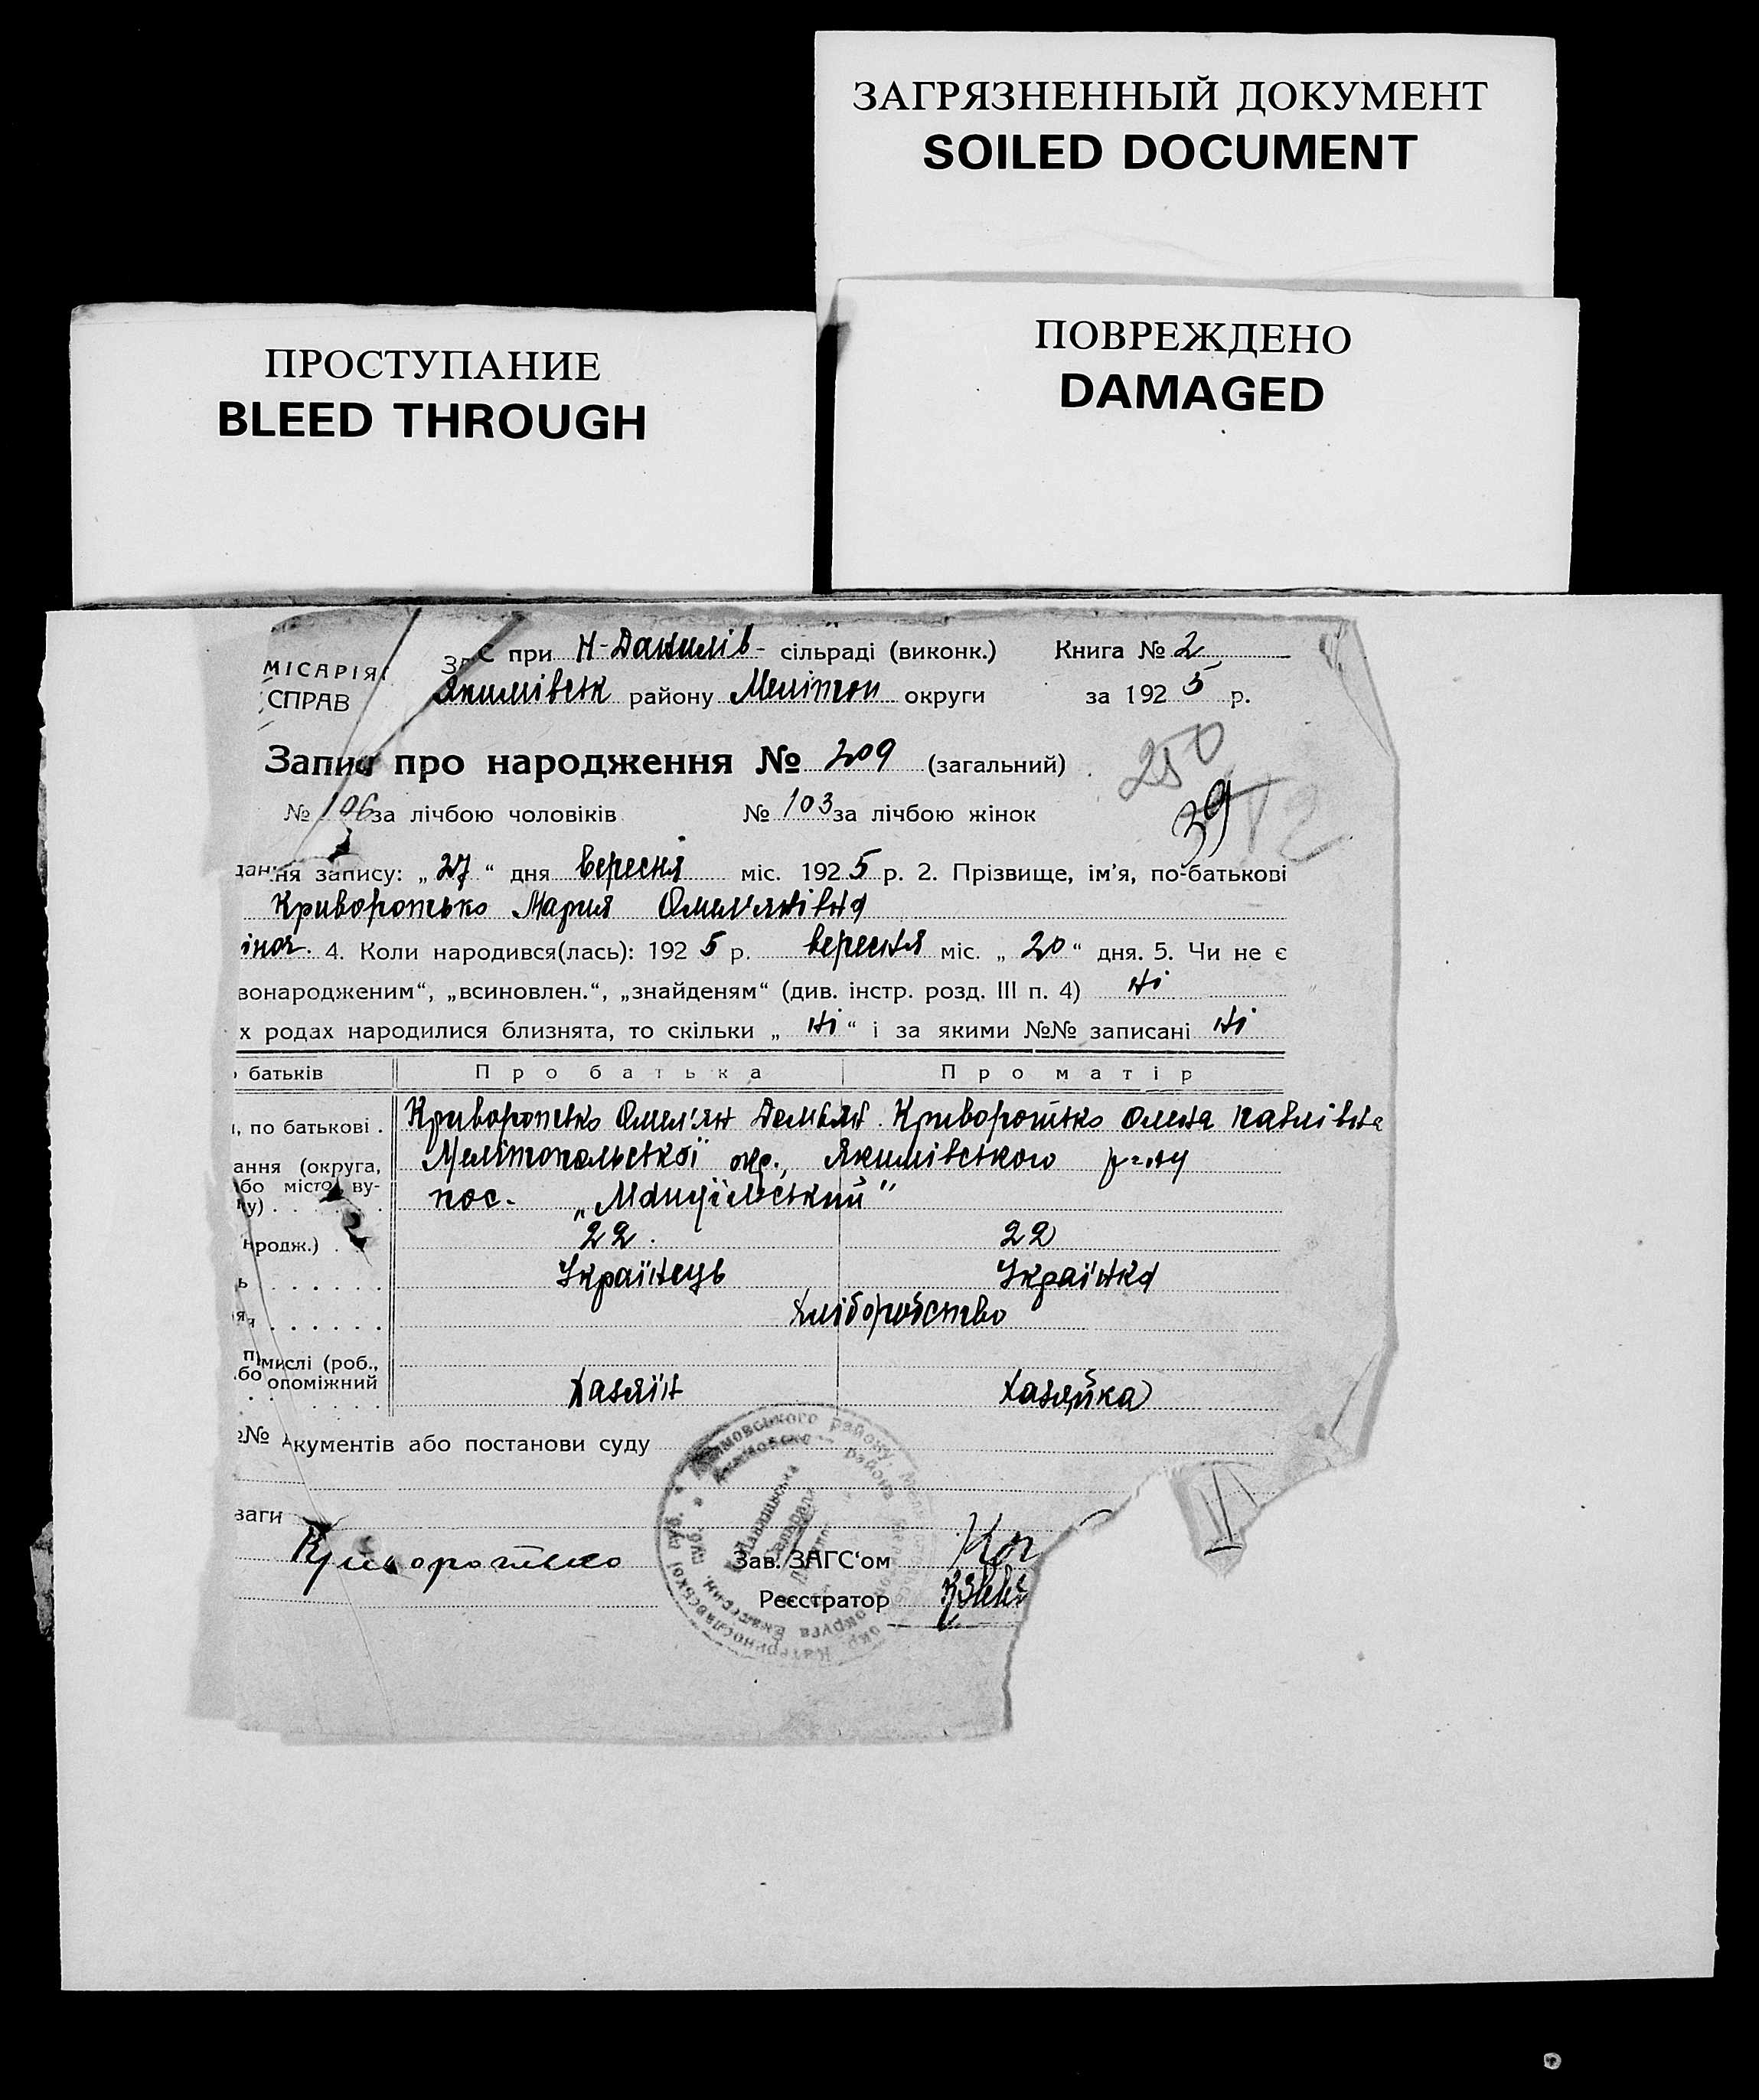 ЗАГРЯЗНЕННЫЙ ДОКУМЕНТ
SOILED DOCUMENT
ПРОСТУПАНИЕ
BLEED THROUGH
ПОВРЕЖДЕНО
DAMAGED
МІСАРІЯ
СПРАВ
ЗАГС при Н-Данилів- сільраді (виконк.) Книга № 2
Якимівськ району Мелітоп округи за 1925 р.
Запис про народження № 209 (загальний)
250
№ 106 за лічбою чоловіків № 103 за лічбою жінок
39
12
ння запису: „27“ дня вересня міс. 1925 р. 2. Прізвище, ім'я, по-батькові
Криворотько Мария Омельянівна
іноч. 4. Коли народився(лась): 1925 р. вересня міс. „20“ дня. 5. Чи не є
вонародженим“, „всиновлен.“, „знайденям“ (див. інстр. розд. III п. 4) ні
х родах народилися близнята, то скільки „ні“ і за якими №№ записані ні
батьків Про батька Про матір
, по батькові . Криворотько Омел'ян Демьян. Криворотько Олена Павлівна
ання (округа, Мелітопольської окр., Якимівського р-ну
або місто, ву-
у) . . . . пос.
нродж.) . 22. 22
ь . . . . . . Українець Українка
ля . . . . . . Хліборобство
мислі (роб.,
або опоміжний Хазяїн Хазяйка
№ кументів або постанови суду
ваги
Криворотько Зав. ЗАГС'ом
Реєстратор